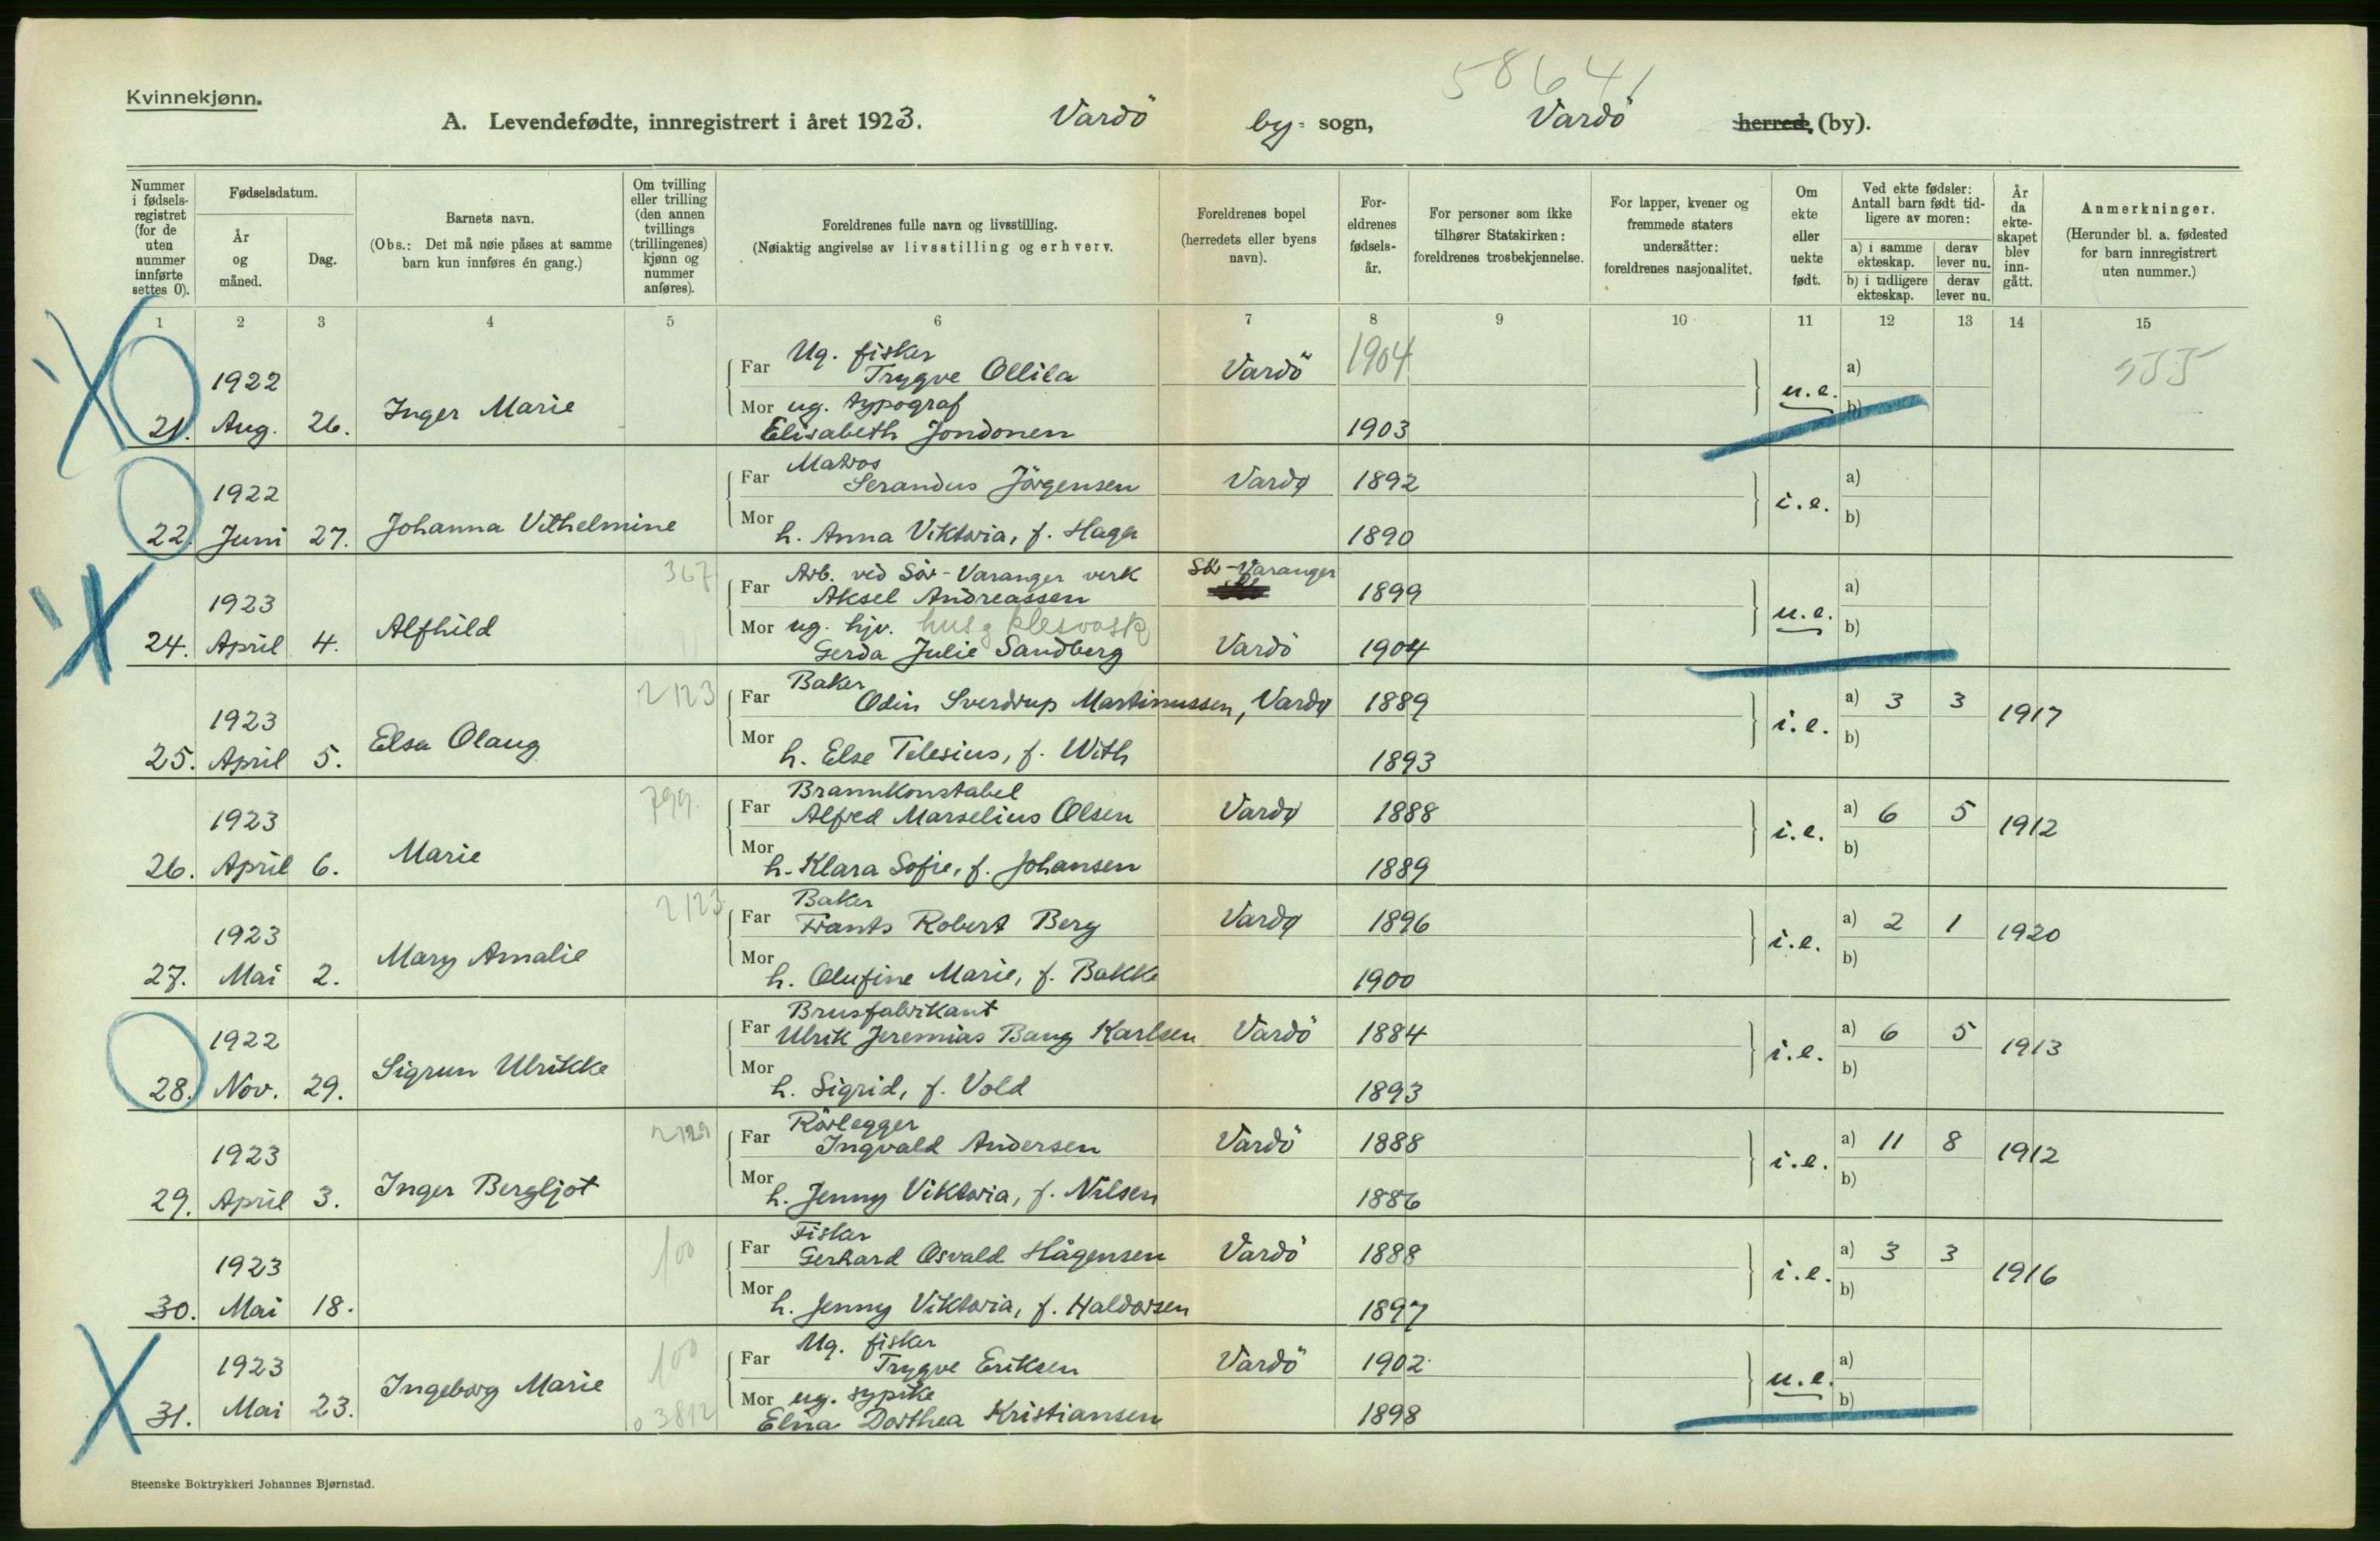 58641
Kvinnekjønn.
A. Levendefødte, innregistrert i året 1923. Vardö by- sogn, Vardö herred, (by).
Nummer i fødsels-registret (for de uten nummer innførte settes 0).
Fødselsdatum.
År og måned.
Dag.
Barnets navn.
(Obs.: Det må nøie påses at samme barn kun innføres én gang.)
Om tvilling eller trilling (den annen tvillings (trillingenes) kjønn og nummer anføres).
Foreldrenes fulle navn og livsstilling.
(Nøiaktig angivelse av livsstilling og erhverv.
Foreldrenes bopel (herredets eller byens navn).
For-eldrenes fødsels-år.
For personer som ikke tilhører Statskirken: foreldrenes trosbekjennelse.
For lapper, kvener og fremmede staters undersåtter: foreldrenes nasjonalitet.
Om ekte eller uekte født.
Ved ekte fødsler: Antall barn født tid-ligere av moren:
a) i samme ekteskap.
derav lever nu.
b) i tidligere ekteskap.
derav lever nu.
År da ekte-skapet blev inn-gått.
Anmerkninger.
(Herunder bl. a. fødested for barn innregistrert uten nummer.)
1 2 3 4 5 6 7 8 9 10 11 12 13 14 15
Ug. fisker
1922 Far Trygve Ollila Vardö 1904 a)
Mor ug. typograf u.e. b)
21. Aug. 26. Inger Marie Elisabeth Jondonen 1903
Matros
1922 Far Serandus Jörgensen Vardø 1892 a)
Mor i.e. b)
22. Juni 27. Johanna Vilhelmine h. Anna Viktoria, f. Haga 1890
367 Arb. ved Sör-Varanger verk Sör-Varanger
1923 Far Aksel Andreassen 1899 a)
Mor ug. hjv. husg klesvask u.e. b)
24. April 4. Alfhild Gerda Julie Sandberg Vardö 1904
2123 Baker
1923 Far Odin Sverdrup Martinussen, Vardø 1889 a) 3 3 1917
Mor i.e. b)
25. April 5. Elsa Olaug h. Else Telesius, f. With 1893
799. Brannkonstabel
1923 Far Alfred Marselius Olsen Vardø 1888 a) 6 5 1912
Mor i.e. b)
26. April 6. Marie h. Klara Sofie, f. Johansen 1889
2123 Baker
1923 Far Frants Robert Berg Vardø 1896 a) 2 1 1920
Mor i.e. b)
27. Mai 2. Mary Amalie h. Olufine Marie, f. Bakke 1900
Brusfabrikant
1922 Far Ulrik Jeremias Bang Karlsen Vardö 1884 a) 6 5 1913
Mor i.e. b)
28. Nov. 29. Sigrun Ulrikke h. Sigrid, f. Vold 1893
Rörlegger
1923 Far Ingvald Andersen Vardö 1888 a) 11 8 1912
Mor i.e. b)
29. April 3. Inger Bergljot h. Jenny Viktoria, f. Nilsen 1886
100 Fisker
1923 Far Gerhard Osvald Hågensen Vardö 1888 a) 3 3 1916
Mor i.e. b)
30. Mai 18. h. Jenny Viktoria, f. Haldorsen 1897
100 Ug. fisker
1923 Far Trygve Eriksen Vardö 1902 a)
Mor ug. sypike u.e. b)
31. Mai 23. Ingeborg Marie Elna Dorthea Kristiansen 1898
Steenske Boktrykkeri Johannes Bjørnstad.